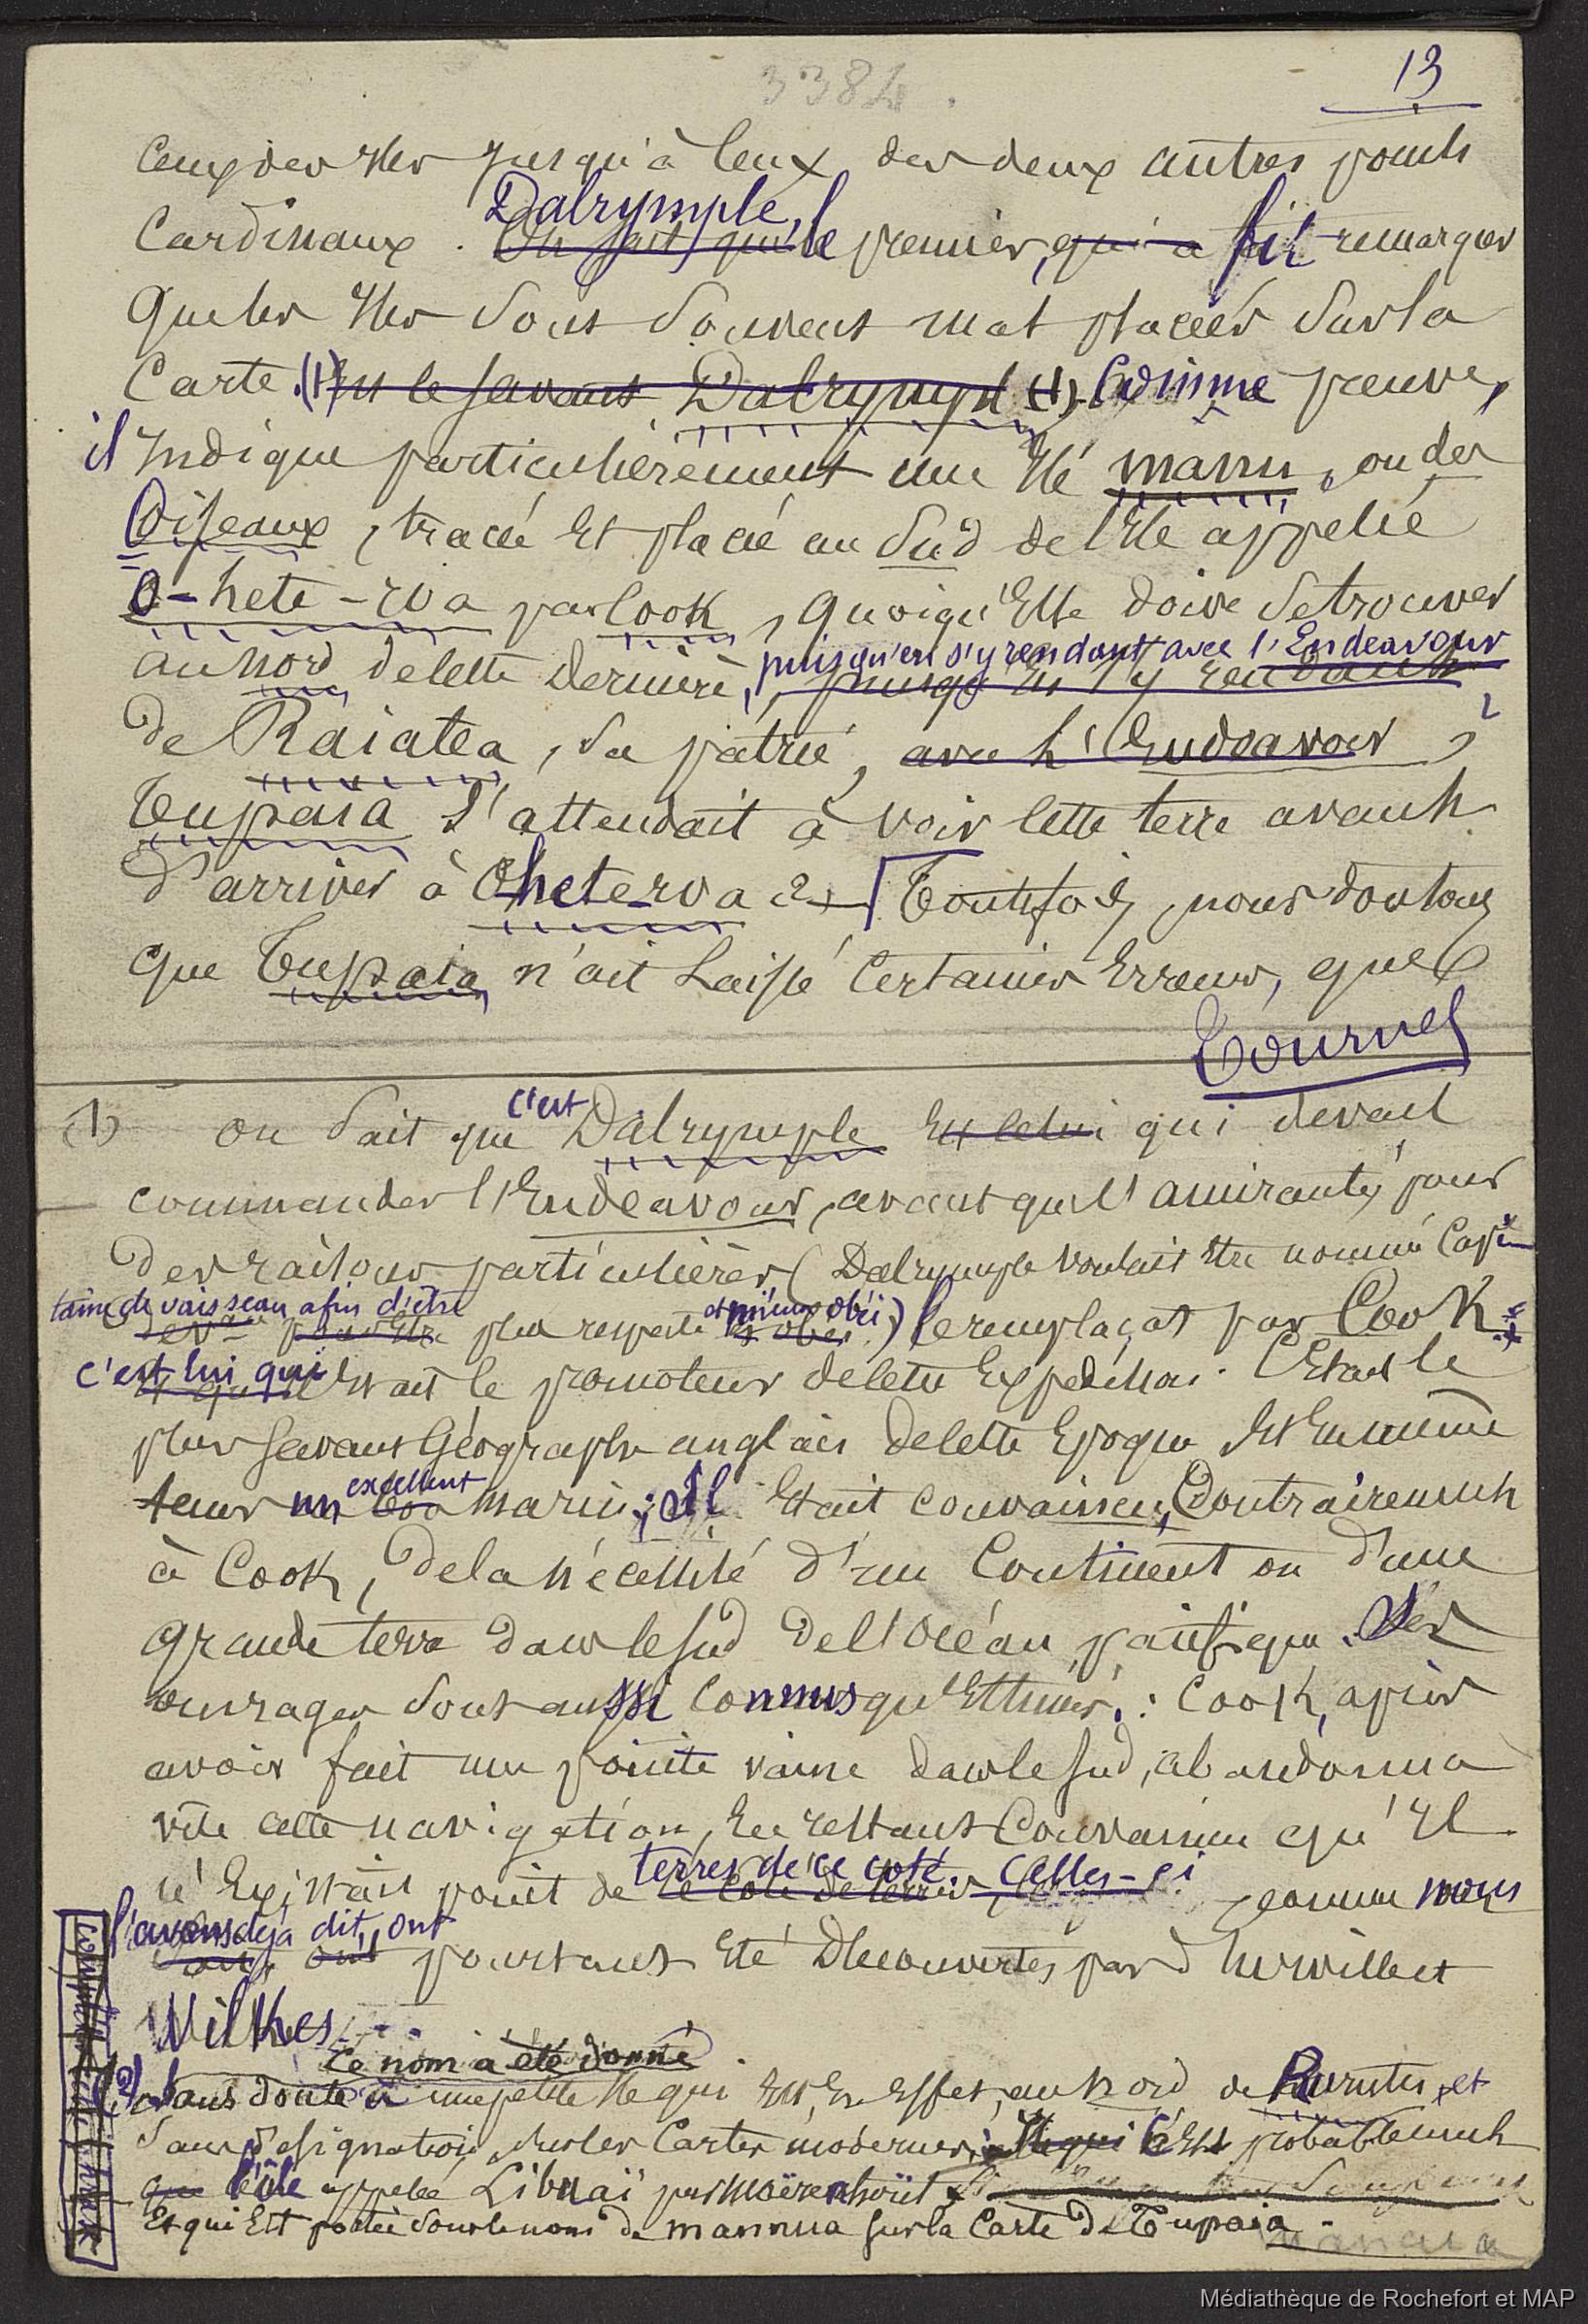 3384.
13
Ceux des Iles jusqu'à Ceux des deux autres points
Cardinaux. Dalrymple, On sait que le premier, qui a fit remarquer
que les Iles sont souvent mal placées sur la
Carte. (1) Est le savant Dalrympl (1). Comme preuve,
il indique particulièrement une Ile manu, ou des
Oiseaux, tracée Et placée au Sud de l'Ile appelée
O-hete-roa par Cook, quoiqu'Elle doive se trouver
au nord de cette dernière, puisqu'en s'y rendant avec l'Endeavour puisqu'en s'y rendant
de Raiatea, sa patrie, avec l'Endeavour,
Tupaia s'attendait à voir cette terre avant
d'arriver à Oheteroa 2 Toutefois, nous doutons
que Tupaia n'ait Laissé Certaines Erreurs, que
Tournes
(1) on sait que c'est Dalrymple Est celui qui devait
commander l'Endeavour, avant que l'amirauté, pour
des raisons particulières (Dalrymple voulait être nommé Capi-
taine de vaisseau afin d'être plus respecté et mieux obéi) le remplaçat par Cook:
c'est lui qui Etait le promoteur de cette Expédition. C'Etait le
plus savant Géographe anglais de cette Epoque Et En même
tems un excellent bon marin; Il Etait convaincu, Contrairement
à Cook, de la nécessité d'un Continent ou d'une
grande terre dans le sud de l'océan pacifique. Ses
ouvrages sont aussi Connus qu'Estimés: Cook, après
avoir fait une pointe vaine dans le sud, abandonna
vite cette navigation, En restant Convaincu qu'Il
n'Existait point de terres de ce coté. Celles-ci, comme nous
l'avons déja dit, ont pourtant Eté Découvertes par d'Urville et
Wilkes.
(2) Ce nom a été donné
sans doute à une petite Ile qui Est, En Effet, au nord de Rurutu, et
sans désignation, sur les Cartes modernes; Ile qui C'Est probablement
que l'île appelée Libnaï par Moërenhoüt
Et qui Est portée sous le nom de mannua sur la Carte de Tupaia.